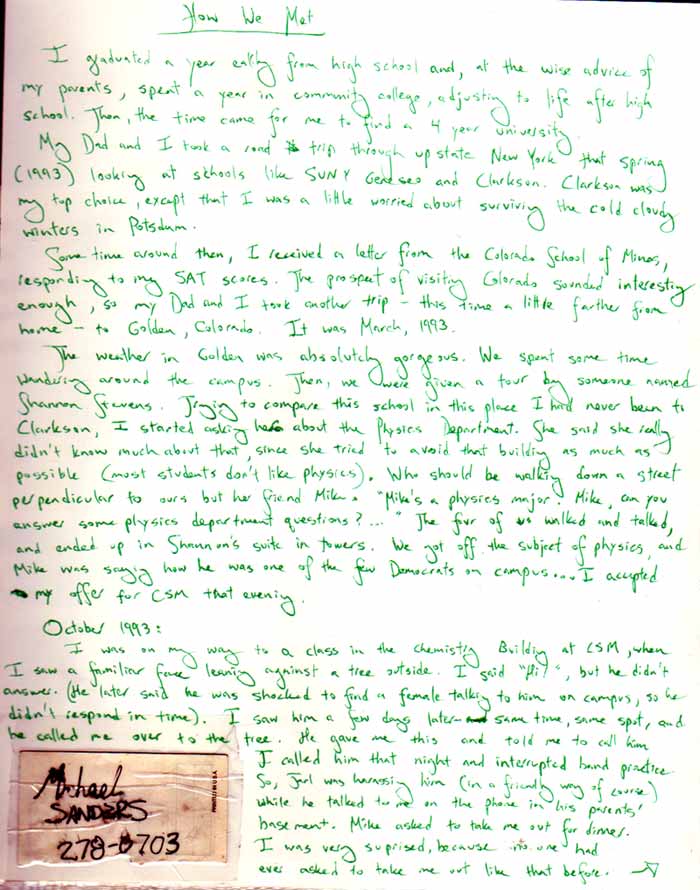 How We Met
I graduated a year ealty from high school and, at the wise advice of
my parents, spent a year in community college, adjusting to life after high
school. Then, the time came for me to find a 4 year university.
My Dad and I took a road trip through upstate New York that spring
(1993) looking at schools like SUNY Geneseo and Clarkson. Clarkson was
my top choice, except that I was a little worried about surviving the cold cloudy
winters in Potsdam.
Sometime around then, I received a letter from the Colorado School of Mines,
responding to my SAT scores. The prospect of visiting Colorado sounded interesting
enough, so my Dad and I took another trip - this time a little farther from
home - to Golden, Colorado. It was March, 1993.
The weather in Golden was absolutely gorgeous. We spent some time
wandering around the campus. Then, we were given a tour by someone named
Shannon Stevens. Trying to compare this school in this place I had never been to
Clarkson, I started asking her about the Physics Department. She said she really
didn't know much about that, since she tried to avoid that building as much as
possible (most students don't like physics). Who should be walking down a street
perpendicular to ours but her friend Mike. "Mike's a physics major. Mike, can you
answer some physics department questions?..." The four of us walked and talked,
and ended up in Shannon's suite in towers. We got off the subject of physics, and
Mike was saying how he was one of the few Democrats on campus.... I accepted
my offer for CSM that evening.
October 1993:
I was on my way to a class in the Chemistry Building at CSM, when
I saw a familiar face leaning against a tree outside. I said "Hi!", but he didn't
answer. (He later said he was shocked to find a female talking to him on campus, so he
didn't respond in time). I saw him a few days later same time, same spot, and
he called me over to the tree. He gave me this and told me to call him
I called him that night and interrupted band practice
So, was harassing him (in a friendly way of course)
while he talked to me on the phone in his parents'
basement. Mike asked to take me out for dinner.
I was very suprised, because no one had
ever asked to take me out like that before. →
Michael
SANDERS
278-0703